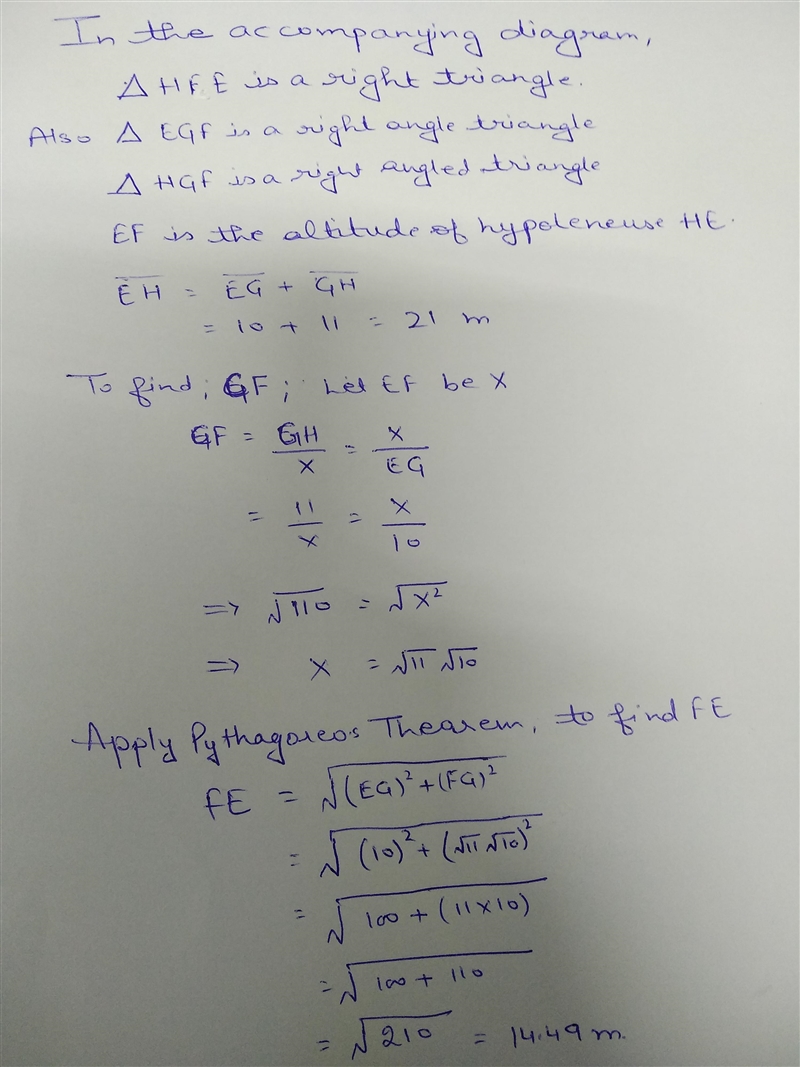 In the accompanying diagram,
△ HFE is a right triangle.
Also △ EGF is a right angle triangle
△ HGF is a right angled triangle
EF is the altitude of hypoteneuse HE.
EH = EG + GH
= 10 + 11 = 21 m
To find; GF; Let EF be X
GF = GH/X = X/EG
= 11/X = X/10
⇒ √110 = √X²
⇒ X = √11 √10
Apply Pythagoreos Thearem, to find FE
FE = √(EG)² + (FG)²
= √(10)² + (√11 √10)²
= √100 + (11×10)
= √100 + 110
= √210 = 14.49 m.